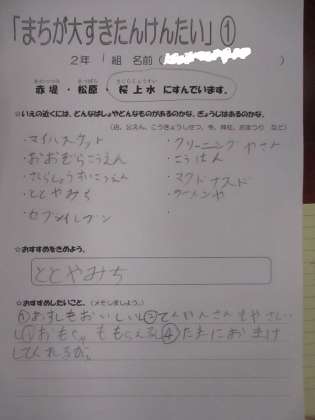 「まちが大すきたんけんたい」①
2年 1組 名前( )
赤堤・松原・桜上水にすんでいます。
☆いえの近くには、どんなばしょやどんなものがあるのかな。ぎょうじはあるのかな。
(店、公えん、こうきょうしせつ、寺、神社、おまつり など)
・マイバスケット
・クリーニングやさ
・おおぞらこうえん
・こうばん
・さくらじょうすいこうえん
・マクドナルド
・ととやみち
・ラーメンや
・セブンイレブン
・
☆おすすめをきめよう。
ととやみち
☆おすすめしたいこと。(メモしましょう。)
①おすしもおいしいし②てんいんさんもやさしい
し③おもちゃももらえるし④たまにおまけ
してくれるが。